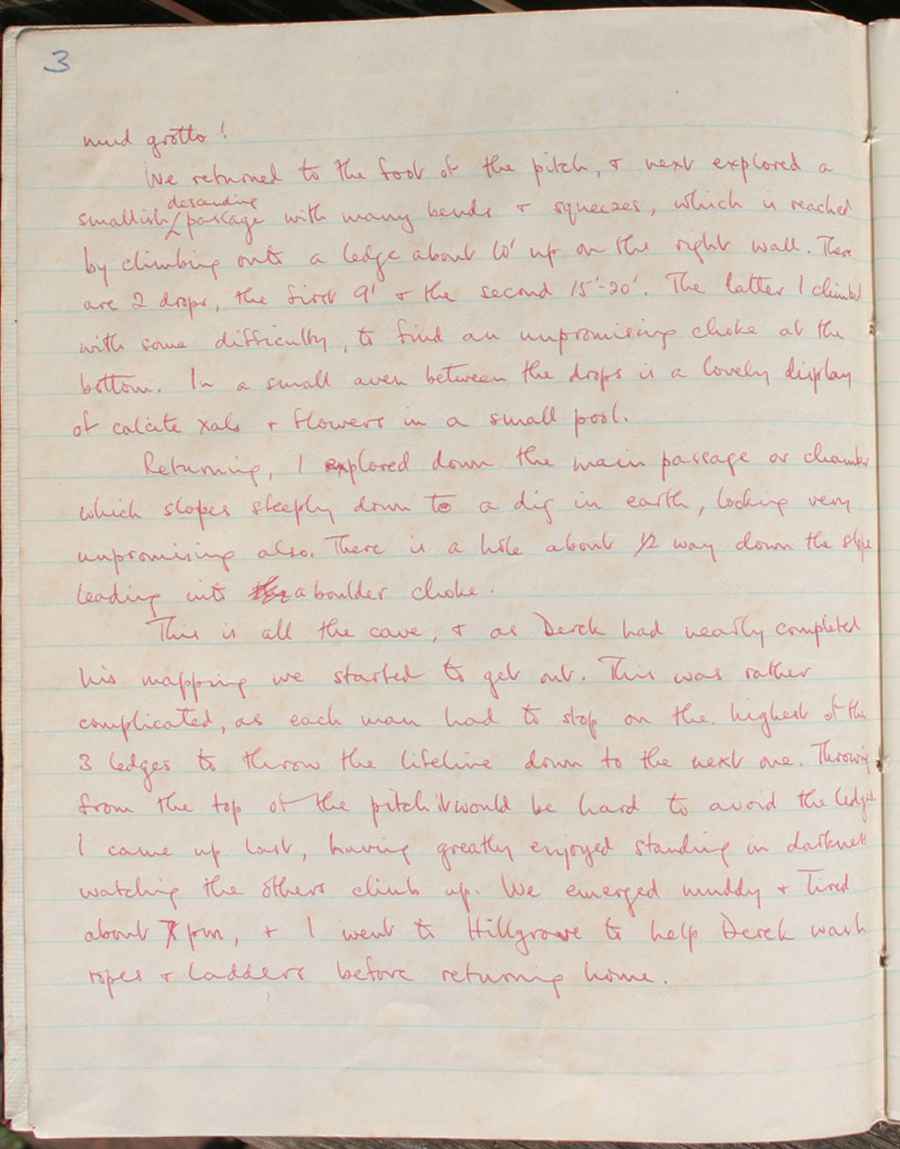 3
mud grotto!
We returned to the foot of the pitch, & next explored a
descending
smallish passage with many bends & squeezes, which is reached
by climbing onto a ledge about 10' up on the right wall. There
are 2 drops, the first 9' & the second 15'-20'. The latter I climbed
with some difficulty, to find an unpromising choke at the
bottom. In a small aven between the drops is a lovely display
of calcite xals & flowers in a small pool.
Returning, I explored down the main passage or chamber
which slopes steeply down to a dig in earth, looking very
unpromising also. There is a hole about 1/2 way down the slope
leading into a boulder choke.
This is all the cave, & as Derek had nearly completed
his mapping we started to get out. This was rather
complicated, as each man had to stop on the highest of the
3 ledges to throw the lifeline down to the next one. Throwing
from the top of the pitch it would be hard to avoid the ledges
I came up last, having greatly enjoyed standing in darkness
watching the others climb up. We emerged muddy & tired
about 7 pm, & I went to Hillgrove to help Derek wash
ropes & ladders before returning home.